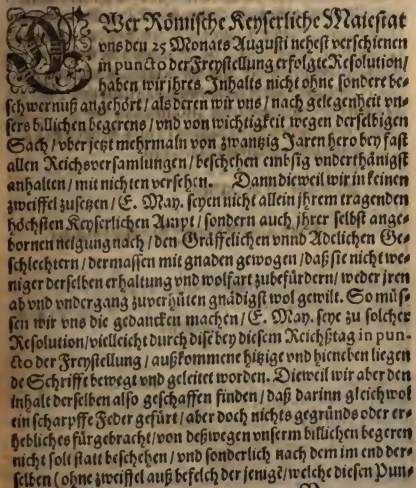 EWer Römische Keyserliche Maiestat
vns den 25 Monats Augusti nehest verschienen
in puncto der Freystellung erfolgte Resolution/
haben wir jhres Inhalts nicht ohne sondere be-
schwernuß angehört/als deren wir vns/nach gelegenheit vn-
sers billichen begerens/vnd von wichtigkeit wegen derselbigen
Sach/vber jetzt mehrmaln von zwantzig Jaren hero bey fast
allen Reichsversamlungen/beschehen embsig vnderthänigst
anhalten/mit nichten versehen. Dann dieweil wir in keinen
zweiffel zusetzen/E. May. seyen nicht allein jhrem tragenden
höchsten Keyserlichen Ampt/sondern auch jhrer selbst ange-
bornen neigung nach/den Gräffelichen vnnd Adelichen Ge-
schlechtern/dermassen mit gnaden gewogen/daß sie nicht we-
niger derselben erhaltung vnd wolfart zubefürdern/weder jren
ab vnd vndergang zuverhüten gnädigst wol gewilt. So müs-
sen wir vns die gedancken machen/E. May. seye zu solcher
Resolution/vielleicht durch dise bey diesem Reichßtag in pun-
cto der Freystellung/außkommene hitzige vnd hieneben liegen
de Schrifft bewegt vnd geleitet worden. Dieweil wir aber den
inhalt derselben also geschaffen finden/daß darinn gleichwol
ein scharpffe Feder gefürt/aber doch nichts gegründs oder er-
hebliches fürgebracht/von deßwegen vnserm billichen begeren
nicht solt statt beschehen/vnd sonderlich nach dem im end der-
selben (ohne zweiffel auß befelch der jenigē/welche diesen Pun-